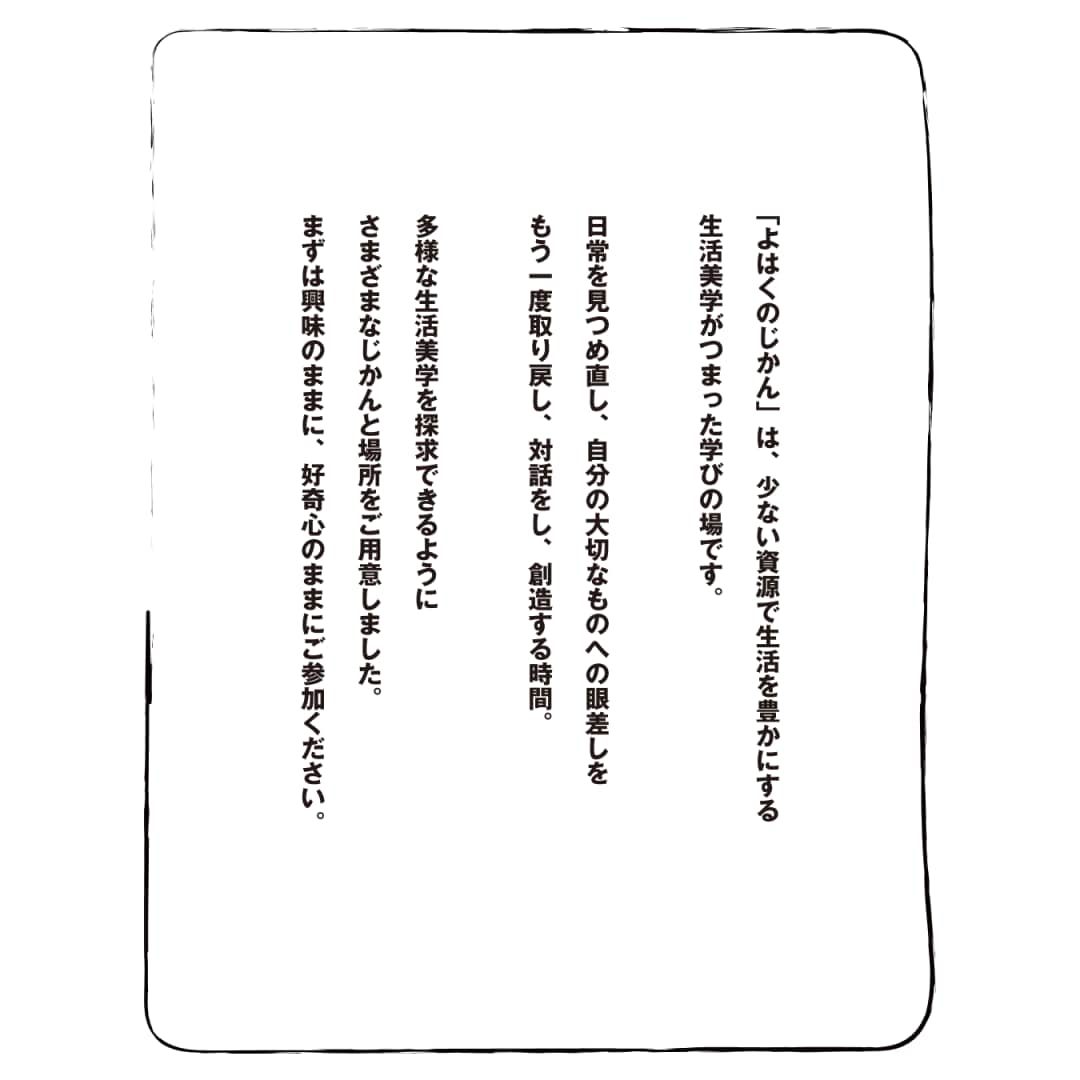 「よはくのじかん」は、少ない資源で生活を豊かにする
生活美学がつまった学びの場です。
日常を見つめ直し、自分の大切なものへの眼差しを
もう一度取り戻し、対話をし、創造する時間。
多様な生活美学を探求できるように
さまざまなじかんと場所をご用意しました。
まずは興味のままに、好奇心のままにご参加ください。